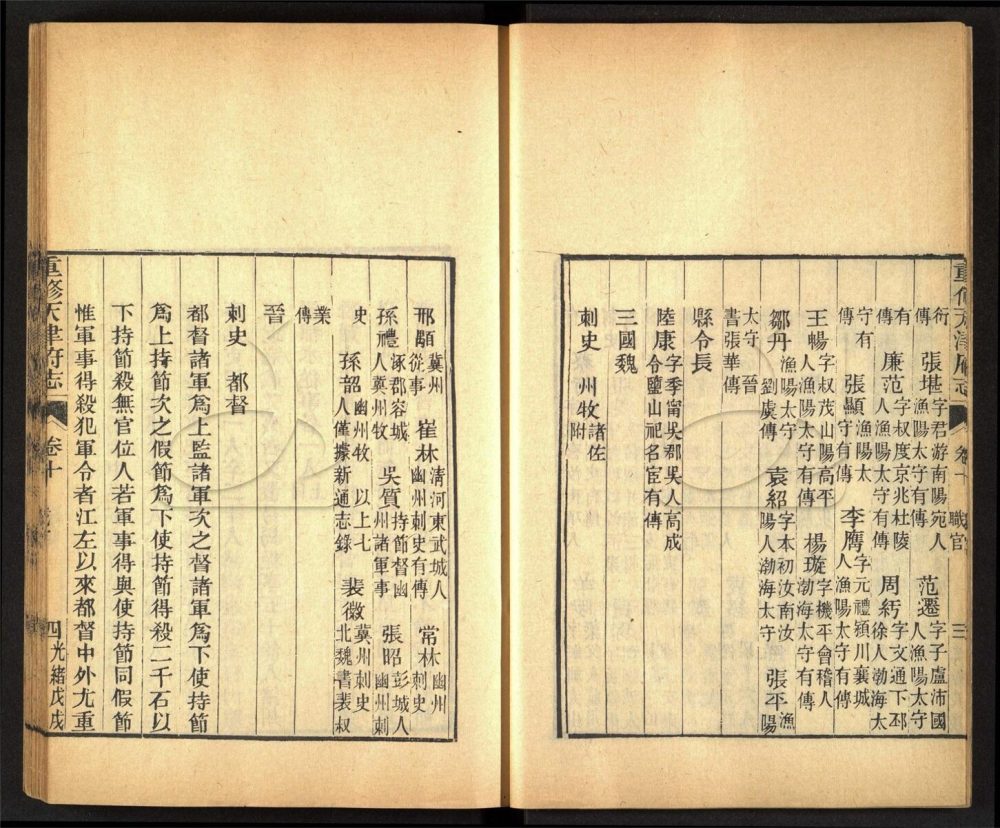 重修天津府志 卷十 職官 三
衍傳 張堪字君游南陽宛人漁陽太守有傳 范遷字子盧沛國人漁陽太守
有傳 廉范字叔度京兆杜陵人漁陽太守有傳 周紆字文通下邳徐人渤海太
守有傳 張顯漁陽太守有傳 李膺字元禮潁川襄城人漁陽太守有傳
王暢字叔茂山陽高平人漁陽太守有傳 楊璇字機平會稽人渤海太守有傳
鄒丹漁陽太守劉虞傳 袁紹字本初汝南汝陽人渤海太守 張平漁陽
太守晉書張華傳
縣令長
陸康字季甯吳郡吳人高成令鹽山祀名宦有傳
三國魏
刺史 州牧諸佐附
邢顒冀州從事 崔林淸河東武城人幽州刺史有傳 常林幽州刺史
孫禮涿郡容城人冀州牧 吳質持節督幽州諸軍事 張昭彭城人幽州刺
史 孫韶幽州牧以上七人僅據新通志錄 裴徽冀州刺史北魏書裴叔
業傳
晉
刺史 都督
都督諸軍爲上監諸軍次之督諸軍爲下使持節
爲上持節次之假節爲下使持節得殺二千石以
下持節殺無官位人若軍事得與使持節同假節
惟軍事得殺犯軍令者江左以來都督中外尤重
重修天津府志 卷十 四 光緒戊戌